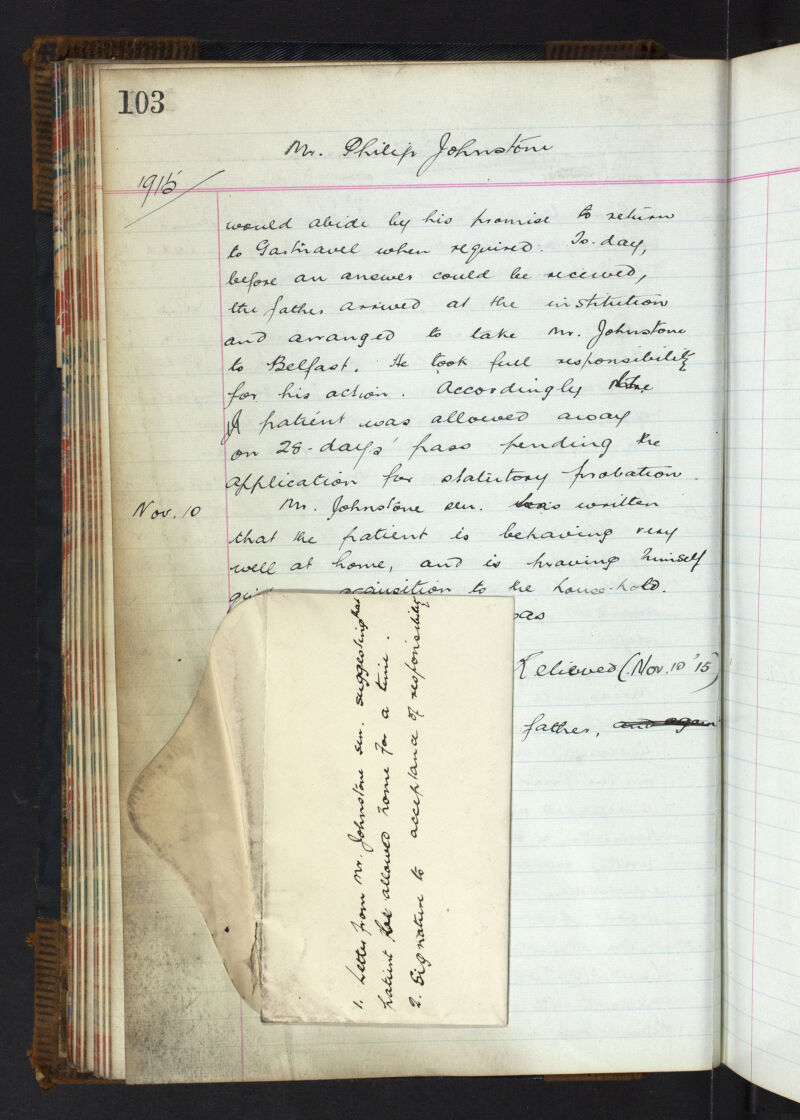 103
Mr. Philip Johnstone
1915
would abide by his promise to return
to Gartnavel when required. To-day,
before an answer could be received,
the father arrived at the institution
and arranged to take Mr. Johnstone
to Belfast. He took full responsibility
for his action. Accordingly
patient was allowed away
on 28-days' pass pending the
application for statutory probation.
Nov. 10
Mr. Johnstone sen. has written
that the patient is behaving very
well at home, and is proving himself
acquisition to the house-hold.
was
Relieved (Nov. 10 '15)
father, and again
1. Letter from Mr. Johnstone sen. suggesting that
patient be allowed home for a time.
2. Signature to acceptance of responsibility